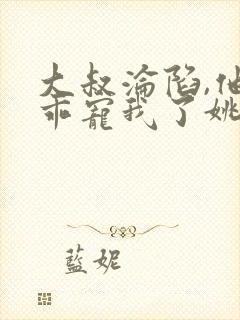 大叔淪陷,他
乖寵我了姚
藍妮